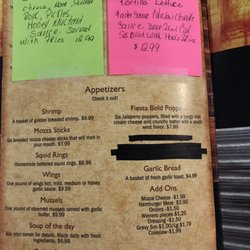 Cheese, Ham, Swiss
Pork, Pickles,
Honey Mustard
Sauce. Served
with fries 12.99
Tortilla Lettuce
Sauce
$12.99
Appetizers
Check it out!
Shrimp
A basket of golden breaded shrimp. $9.99
Mozza Sticks
Six breaded mozza cheese sticks that will melt in
your mouth. $7.99
Squid Rings
Homemade battered squid rings. $8.99
Wings
One pound of wings, hot, mild, medium or honey
garlic sauce. $9.99
Mussels
One pound of steamed mussels served with garlic
butter. $8.99
Soup of the day
Ask your server for details. Made daily with fresh
ingredients. $6.99
Fiesta Bold Poppers
Six jalapeno poppers, filled with a tangy mild
cream cheese and crunchy batter with a south
west flavor. $7.99
Garlic Bread
A basket of fresh garlic toast. $4.99
Add Ons
Mozza Cheese $1.99
Hamburger Meat $3.99
Onions $1.49
Wieners pieces $1.25
Dressing $1.50
Gravy Sm $1.00/Lg $1.79
Coleslaw $1.99